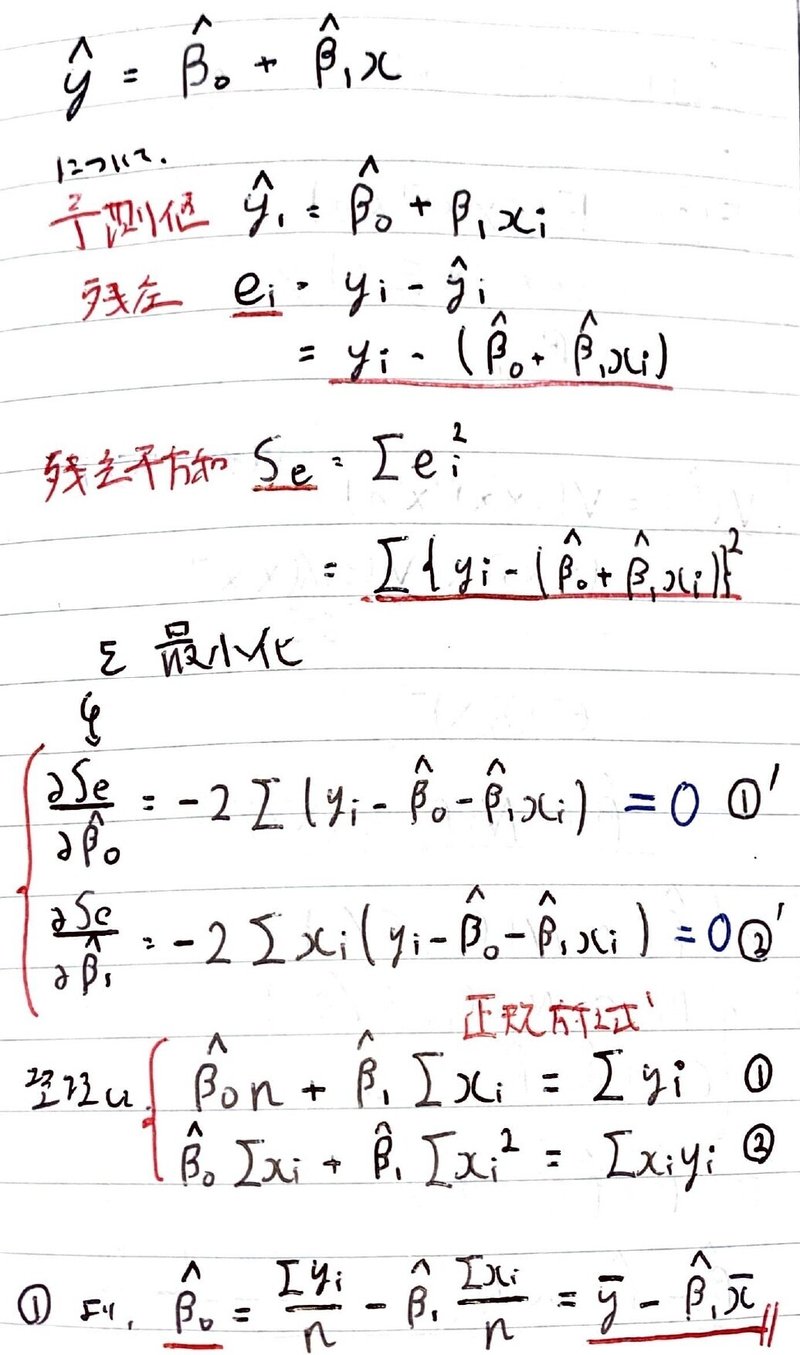 ŷ = β̂₀ + β̂₁x
について.
予測値 ŷ₁ = β̂₀ + β₁xᵢ
残差 eᵢ = yᵢ - ŷᵢ
= yᵢ - (β̂₀ + β̂₁xᵢ)
残差平方和 Se = Σeᵢ²
= Σ{yᵢ - (β̂₀ + β̂₁xᵢ)}²
を最小化
∂Se/∂β̂₀ = -2Σ(yᵢ - β̂₀ - β̂₁xᵢ) = 0 ①'
∂Se/∂β̂₁ = -2Σxᵢ(yᵢ - β̂₀ - β̂₁xᵢ) = 0 ②'
正規方程式
β̂₀n + β̂₁Σxᵢ = Σyᵢ ①
β̂₀Σxᵢ + β̂₁Σxᵢ² = Σxᵢyᵢ ②
① より, β̂₀ = Σyᵢ/n - β̂₁ Σxᵢ/n = ȳ - β̂₁x̄